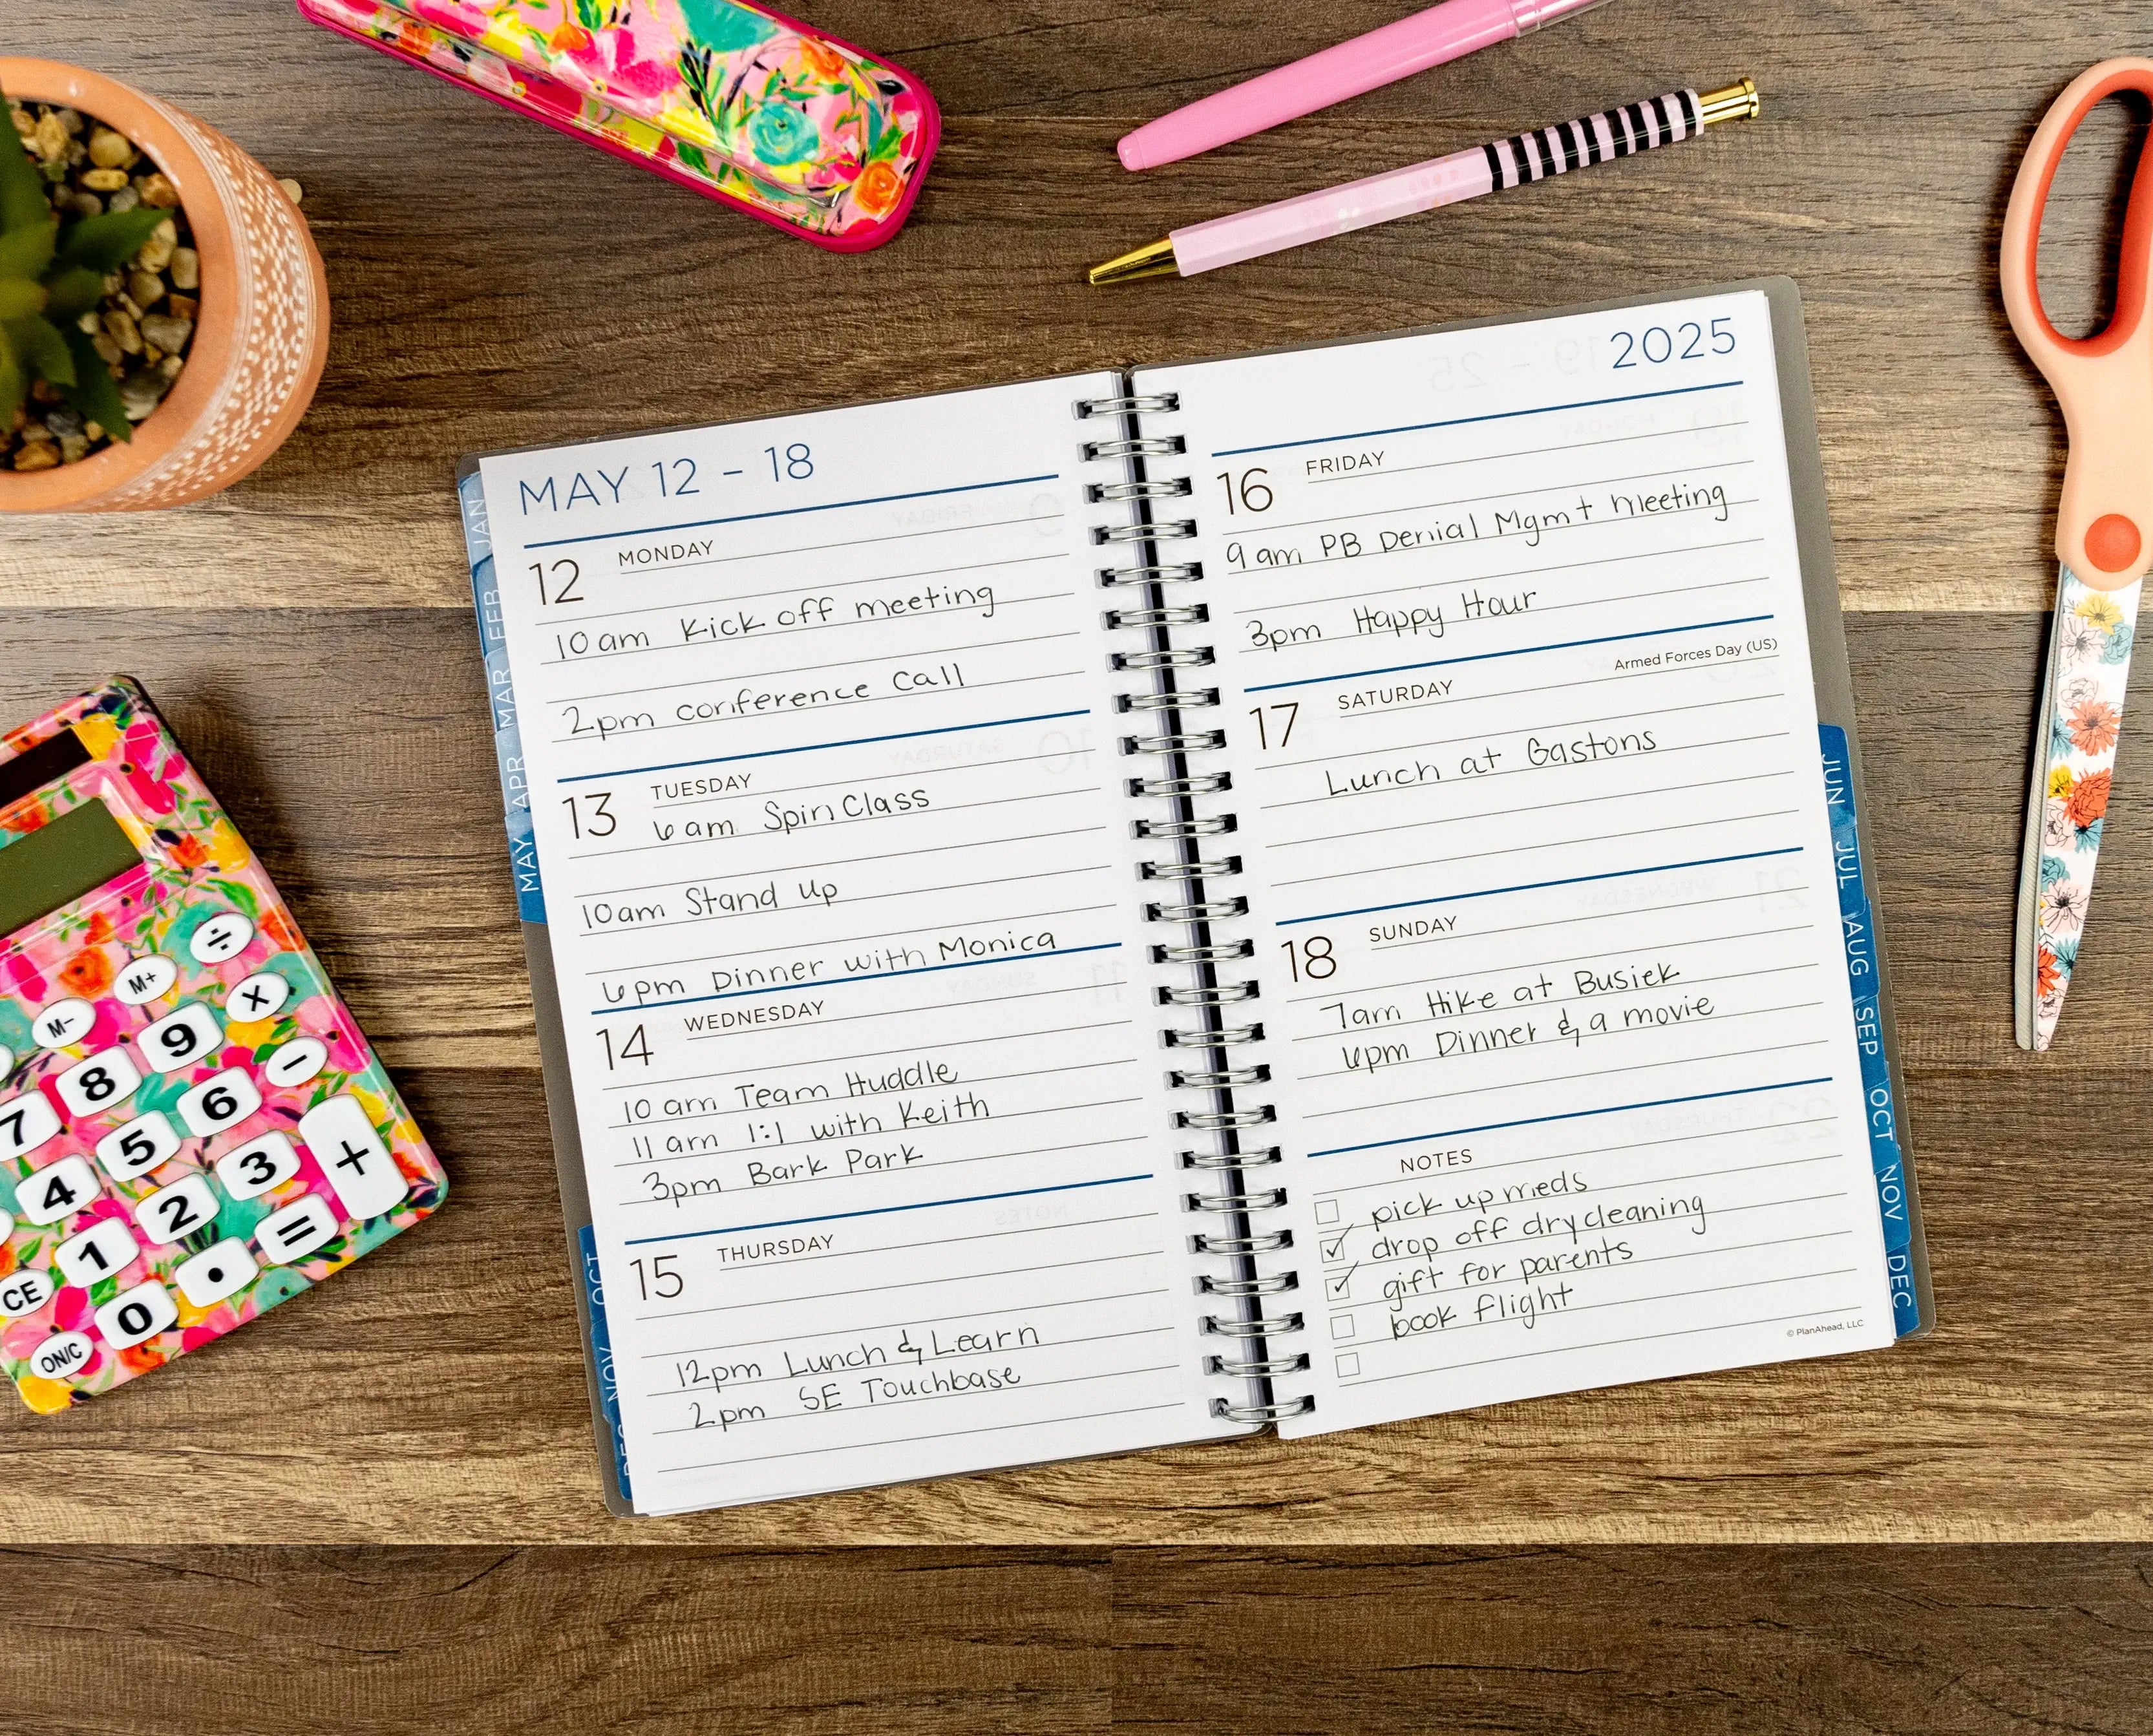 MAY 12 - 18
12 MONDAY
10 am Kick off meeting
2pm conference call
13 TUESDAY
6 am Spin Class
10am Stand up
6pm Dinner with Monica
14 WEDNESDAY
10 am Team Huddle
11 am 1:1 with Keith
3pm Bark Park
15 THURSDAY
12pm Lunch & Learn
2pm SE Touchbase
2025
16 FRIDAY
9 am PB Denial Mgmt meeting
3pm Happy Hour
Armed Forces Day (US)
17 SATURDAY
Lunch at Gastons
18 SUNDAY
7am Hike at Busiek
6pm Dinner & a movie
NOTES
pick up meds
drop off dry cleaning
gift for parents
book flight
© PlanAhead, LLC
JAN
FEB
MAR
APR
MAY
OCT
NOV
DEC
JUN
JUL
AUG
SEP
OCT
NOV
DEC
M- M+ ÷
7 8 9 X
4 5 6 -
CE 1 2 3 +
ON/C 0 . =